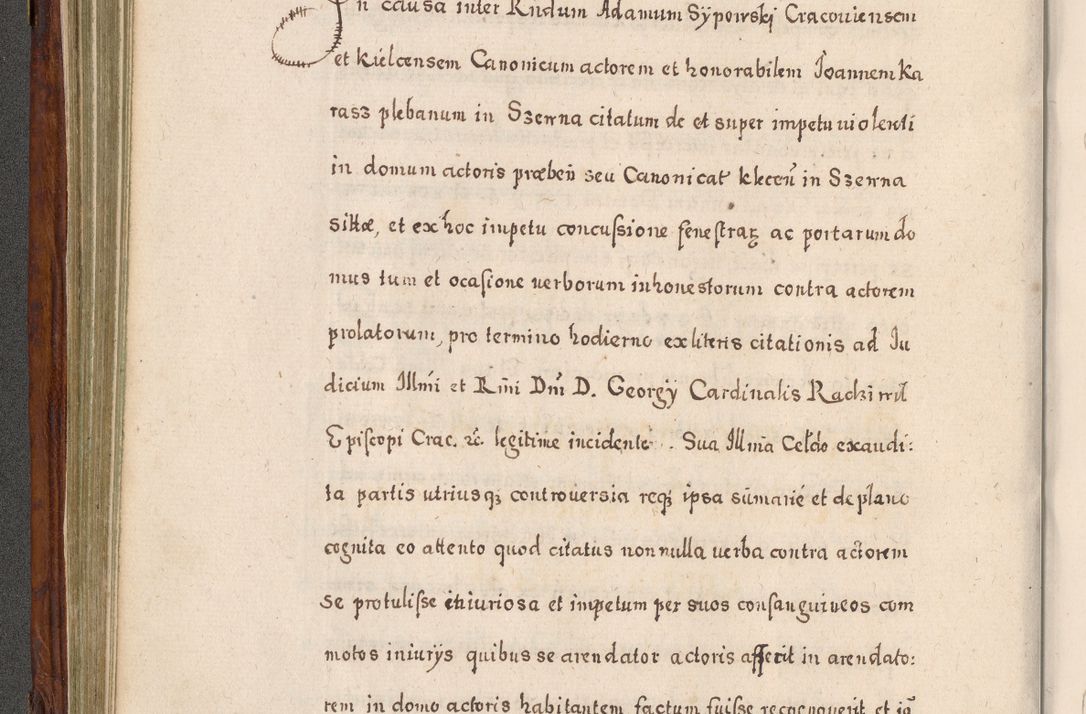 In causa inter Rndum Adamum Sÿpowskj Cracouiensem
et Kielcensem Canonicum actorem et honorabilem Joannem Ka
rasz plebanum in Szewna citatum de et super impetu uiolenti
in domum actoris præben̄ seu Canonicat klecen̄ in Szewna
sittæ, et ex hoc impetu concuſsione feneſtraꝝ ac portarum do
mus tum et ocaſione uerborum inhonestorum contra actorem
prolatorum, pro termino hodierno ex literis citationis ad Ju
dicium Illmi et Rmi Dni D. Georgÿ Cardinalis Radziwil
Epiſcopi Crac. rc. legitime incidente. Sua Illma Celdo exaudi:
ta partis utriusqꝫ controuersia reqꝫ ipsa sūmarié et de plano
cognita eo attento quod citatus nonnulla uerba contra actorem
se protuliſse iniuriosa et impetum per suos conſanguineos com
motos iniurÿs quibus se arendator actoris aſſerit in arendato:
rem in domo actoris habitantem factum fuiſse recognouerit et iā